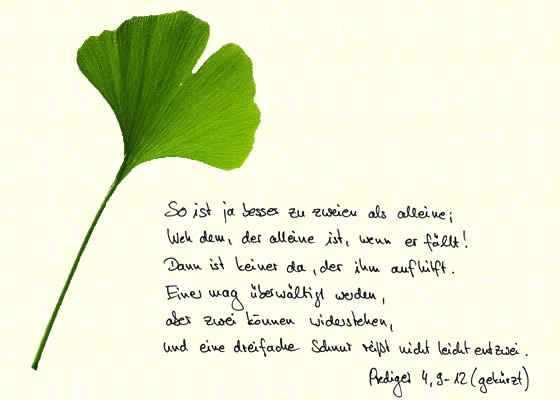 So ist ja besser zu zweien als alleine;
Weh dem, der alleine ist, wenn er fällt!
Dann ist keiner da, der ihm aufhilft.
Einer mag überwältigt werden,
aber zwei können widerstehen,
und eine dreifache Schnur reißt nicht leicht entzwei.
Prediger 4, 9-12 (gekürzt)